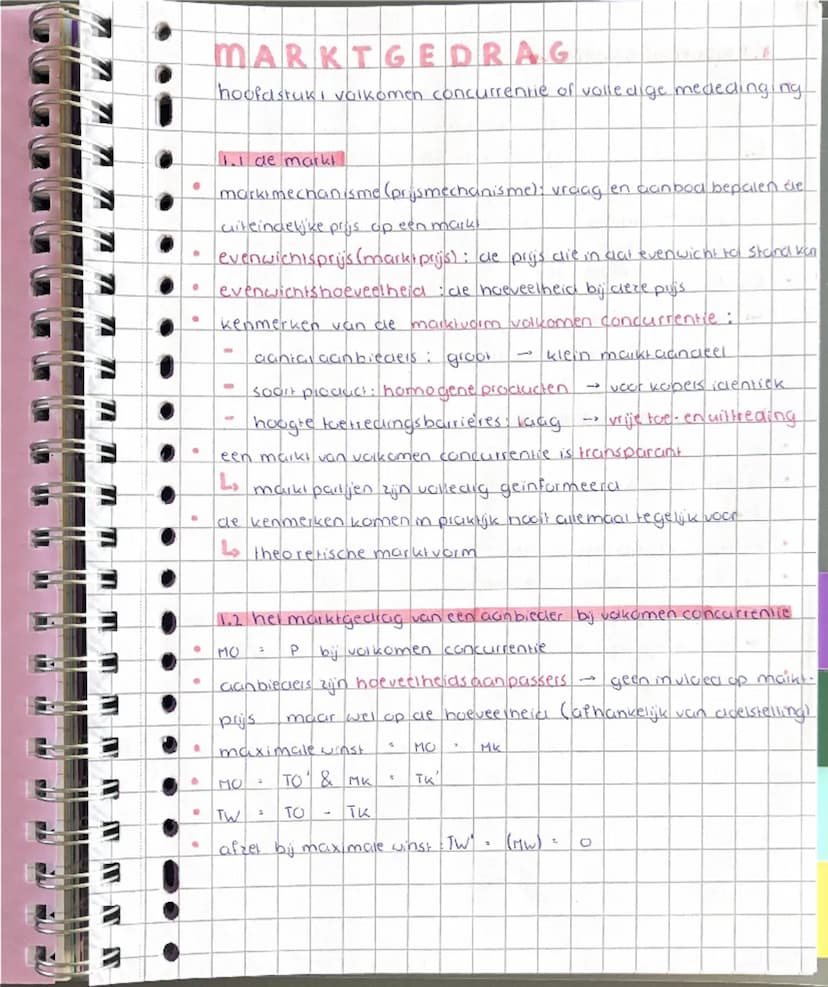 MARKTGEDRAG
hoofdstuk 1 volkomen concurrentie of volledige mededinging
1.1 de markt
• marktmechanisme (prijsmechanisme): vraag en aanbod bepalen de
uiteindelijke prijs op een markt
• evenwichtsprijs (marktprijs): de prijs die in dat evenwicht tot stand kan
• evenwichtshoeveelheid : de hoeveelheid bij deze prijs
• kenmerken van de marktvorm volkomen concurrentie :
- aantal aanbieders : groot → klein marktaandeel
- soort product : homogene producten → voor kopers identiek
- hoogte toetredingsbarrières : laag → vrije toe- en uittreding
• een markt van volkomen concurrentie is transparant
↳ marktpartijen zijn volledig geïnformeerd
• de kenmerken komen in praktijk nooit allemaal tegelijk voor
↳ theoretische marktvorm
1.2 het marktgedrag van een aanbieder bij volkomen concurrentie
• MO = P bij volkomen concurrentie
• aanbieders zijn hoeveelheidsaanpassers → geen invloed op markt-
prijs maar wel op de hoeveelheid (afhankelijk van doelstelling)
• maximale winst = MO = MK
• MO = TO' & MK = TK'
• TW = TO - TK
• afzet bij maximale winst : TW' = (MW) = 0